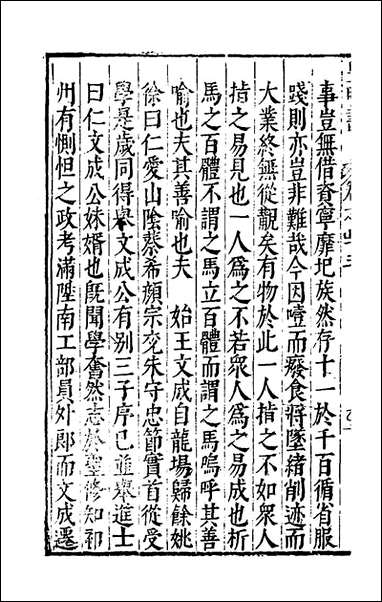 事豈無借脊寧靡圮族然存十一於千百循省服
踐則亦豈非難哉今因噎而廢食將墜緒削迹而
大業終無從觀矣有物於此一人揹之不如衆人
揹之易見也一人為之不若衆人為之易成也析
馬之百體不謂之馬立百體而謂之馬嗚呼其善
喻也夫其善喻也夫　始王文成自龍塲歸餘姚
徐曰仁愛山陰蔡希顔宗兖朱守忠節實首從受
學是歲同得舉文成公有别三子序已進舉進士
曰仁文成公妹婿也旣聞學奮然志於聖修知祁
州有惻怛之政考滿陞南工部員外郎而文成遷